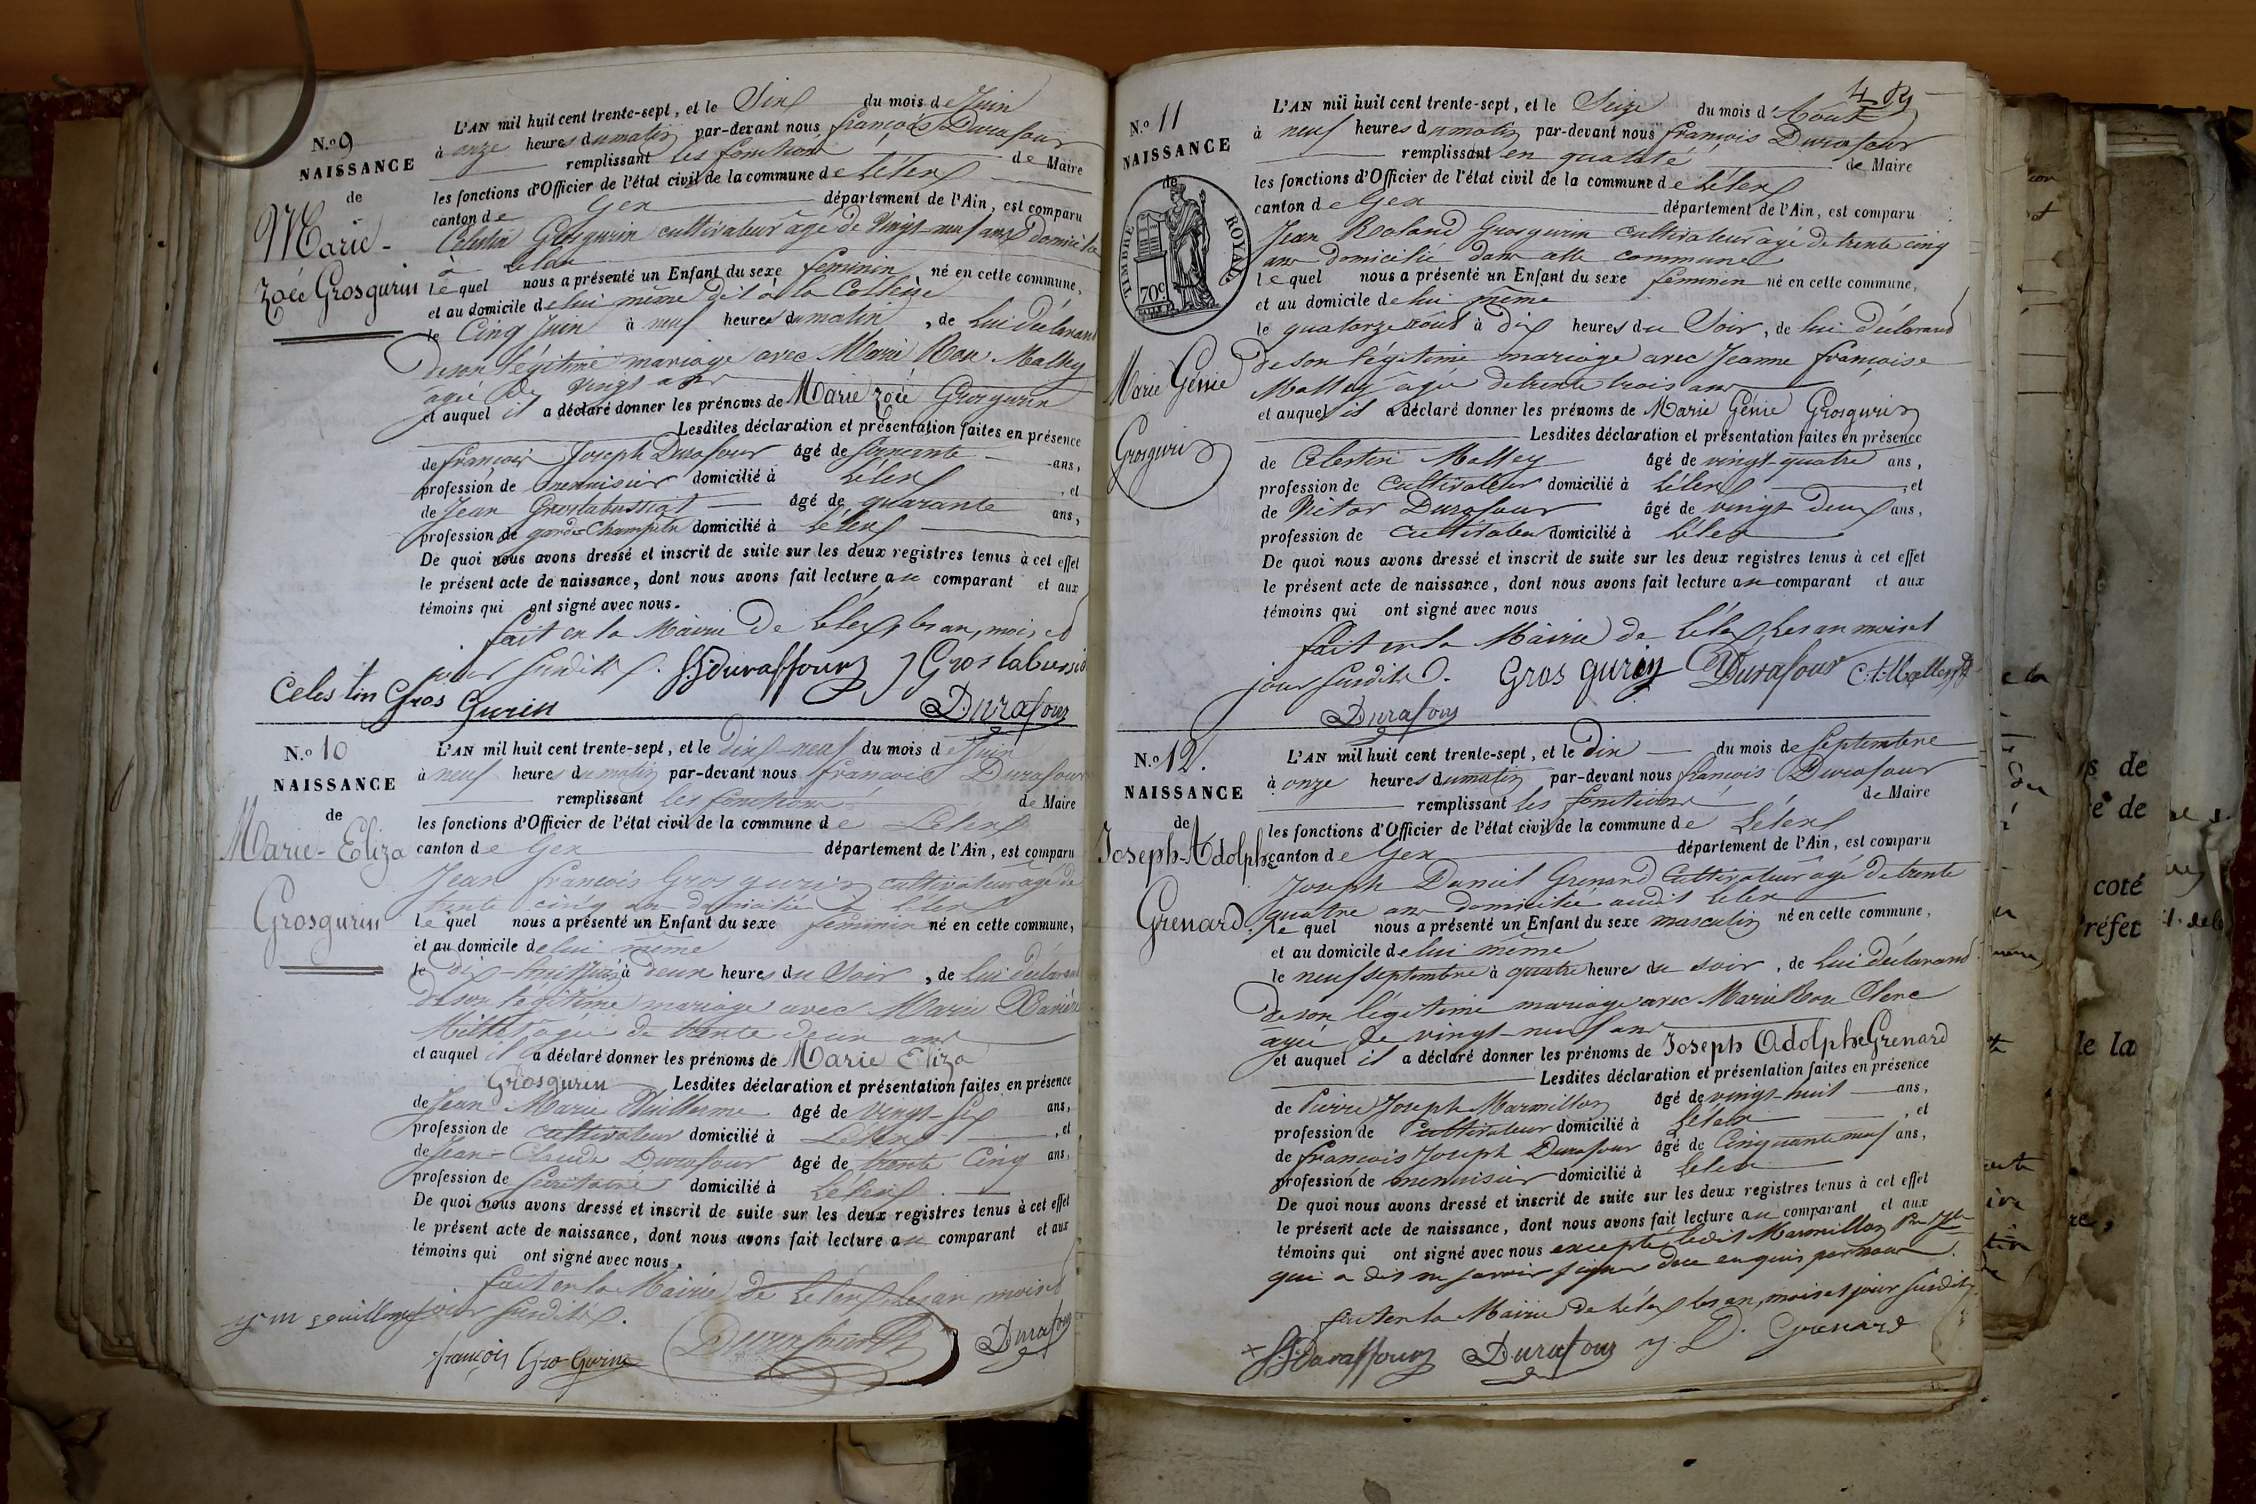 N.o 9
NAISSANCE
de
Marie-
Zoée Grosgurin
L'AN mil huit cent trente-sept, et le Six du mois de Juin
à onze heures du matin par-devant nous françois Durafour
remplissant les fonctions de Maire
les fonctions d'Officier de l'état civil de la commune de Lélex
canton de Gex département de l'Ain, est comparu
Celestin Grosgurin cultivateur âgé de vingt-neuf ans domicilié
à Lélex
lequel nous a présenté un Enfant du sexe feminin, né en cette commune,
et au domicile de lui même dit à la
le Cinq Juin à neuf heures du matin, de lui déclarand
de son légitime mariage avec Marie Rose Mathey
agée de vingt ans
et auquel il a déclaré donner les prénoms de Marie zoée Grosgurin
Lesdites déclaration et présentation faites en présence
de françois Joseph Durafour âgé de ans,
profession de menuisier domicilié à Lélex, et
de Jean Groslabussiat âgé de quarante ans,
profession de garde Champêtre domicilié à Lélex
De quoi nous avons dressé et inscrit de suite sur les deux registres tenus à cet effet
le présent acte de naissance, dont nous avons fait lecture au comparant et aux
témoins qui ont signé avec nous.
fait en la Mairie de Lélex, les an, mois et
jour susdits.
f.J duraffourg J Groslabussia
Celestin Gros Gurin
Durafour
N.o 10
NAISSANCE
de
Marie-Eliza
Grosgurin
L'AN mil huit cent trente-sept, et le dix-neuf du mois de Juin
à neuf heures du matin par-devant nous françois Durafour
remplissant les fonctions de Maire
les fonctions d'Officier de l'état civil de la commune de Lélex
canton de Gex département de l'Ain, est comparu
Jean françois Grosgurin cultivateur âgé de
trente cinq ans domicilié à Lélex
lequel nous a présenté un Enfant du sexe feminin né en cette commune,
et au domicile de lui même
le dix-huit Juin à deux heures du Soir, de lui déclarand
de son légitime mariage avec Marie
agée de trente deux ans
et auquel il a déclaré donner les prénoms de Marie Eliza
Grosgurin Lesdites déclaration et présentation faites en présence
de Jean Marie âgé de vingt six ans,
profession de cultivateur domicilié à Lélex, et
de Jean-Claude Durafour âgé de trente Cinq ans,
profession de Secrétaire domicilié à Lélex
De quoi nous avons dressé et inscrit de suite sur les deux registres tenus à cet effet
le présent acte de naissance, dont nous avons fait lecture au comparant et aux
témoins qui ont signé avec nous.
fait en la Mairie de Lélex les an mois et
jour susdits.
françois Gro Gurin Durafour
N.o 11
NAISSANCE
de
TIMBRE ROYAL
70c
Marie Génie
Grosgurin
L'AN mil huit cent trente-sept, et le Seize du mois d'Août
à neuf heures du matin par-devant nous françois Durafour
remplissant en qualité de Maire
les fonctions d'Officier de l'état civil de la commune de Lélex
canton de Gex département de l'Ain, est comparu
Jean Roland Grosgurin cultivateur âgé de trente cinq
ans domicilié dans commune
lequel nous a présenté un Enfant du sexe feminin né en cette commune,
et au domicile de lui même
le quatorze août à dix heures du Soir, de lui déclarand
de son légitime mariage avec Jeanne françoise
Mathey agée de trente trois ans
et auquel il a déclaré donner les prénoms de Marie Génie Grosgurin
Lesdites déclaration et présentation faites en présence
de Celestin Mathey âgé de vingt-quatre ans,
profession de Cultivateur domicilié à Lélex, et
de Victor Durafour âgé de vingt deux ans,
profession de cultivateur domicilié à Lélex
De quoi nous avons dressé et inscrit de suite sur les deux registres tenus à cet effet
le présent acte de naissance, dont nous avons fait lecture au comparant et aux
témoins qui ont signé avec nous
fait en la Mairie de Lélex, les an mois et
jour susdits. Gros gurin Durafour
Durafour
N.o 12.
NAISSANCE
de
Joseph-Adolphe
Grenard.
L'AN mil huit cent trente-sept, et le dix du mois de Septembre
à onze heures du matin par-devant nous françois Durafour
remplissant les fonctions de Maire
les fonctions d'Officier de l'état civil de la commune de Lélex
canton de Gex département de l'Ain, est comparu
Joseph Daniel Grenard Cultivateur âgé de trente
quatre ans domicilié audit Lélex
lequel nous a présenté un Enfant du sexe masculin né en cette commune,
et au domicile de lui même
le neuf septembre à quatre heures du soir, de lui déclarand
de son légitime mariage avec Marie Rose Clerc
agée de vingt-neuf ans
et auquel il a déclaré donner les prénoms de Joseph Adolphe Grenard
Lesdites déclaration et présentation faites en présence
de Pierre Joseph Marmillon âgé de vingt-huit ans,
profession de Cultivateur domicilié à Lélex, et
de françois Joseph Durafour âgé de Cinquante neuf ans,
profession de menuisier domicilié à Lélex
De quoi nous avons dressé et inscrit de suite sur les deux registres tenus à cet effet
le présent acte de naissance, dont nous avons fait lecture au comparant et aux
témoins qui ont signé avec nous excepté ledit Marmillon
qui a dit ne savoir signer de ce enquis par nous.
fait en la Mairie de Lélex les an, mois et jour susdits
f.J Duraffourg Durafour J D. Grenard